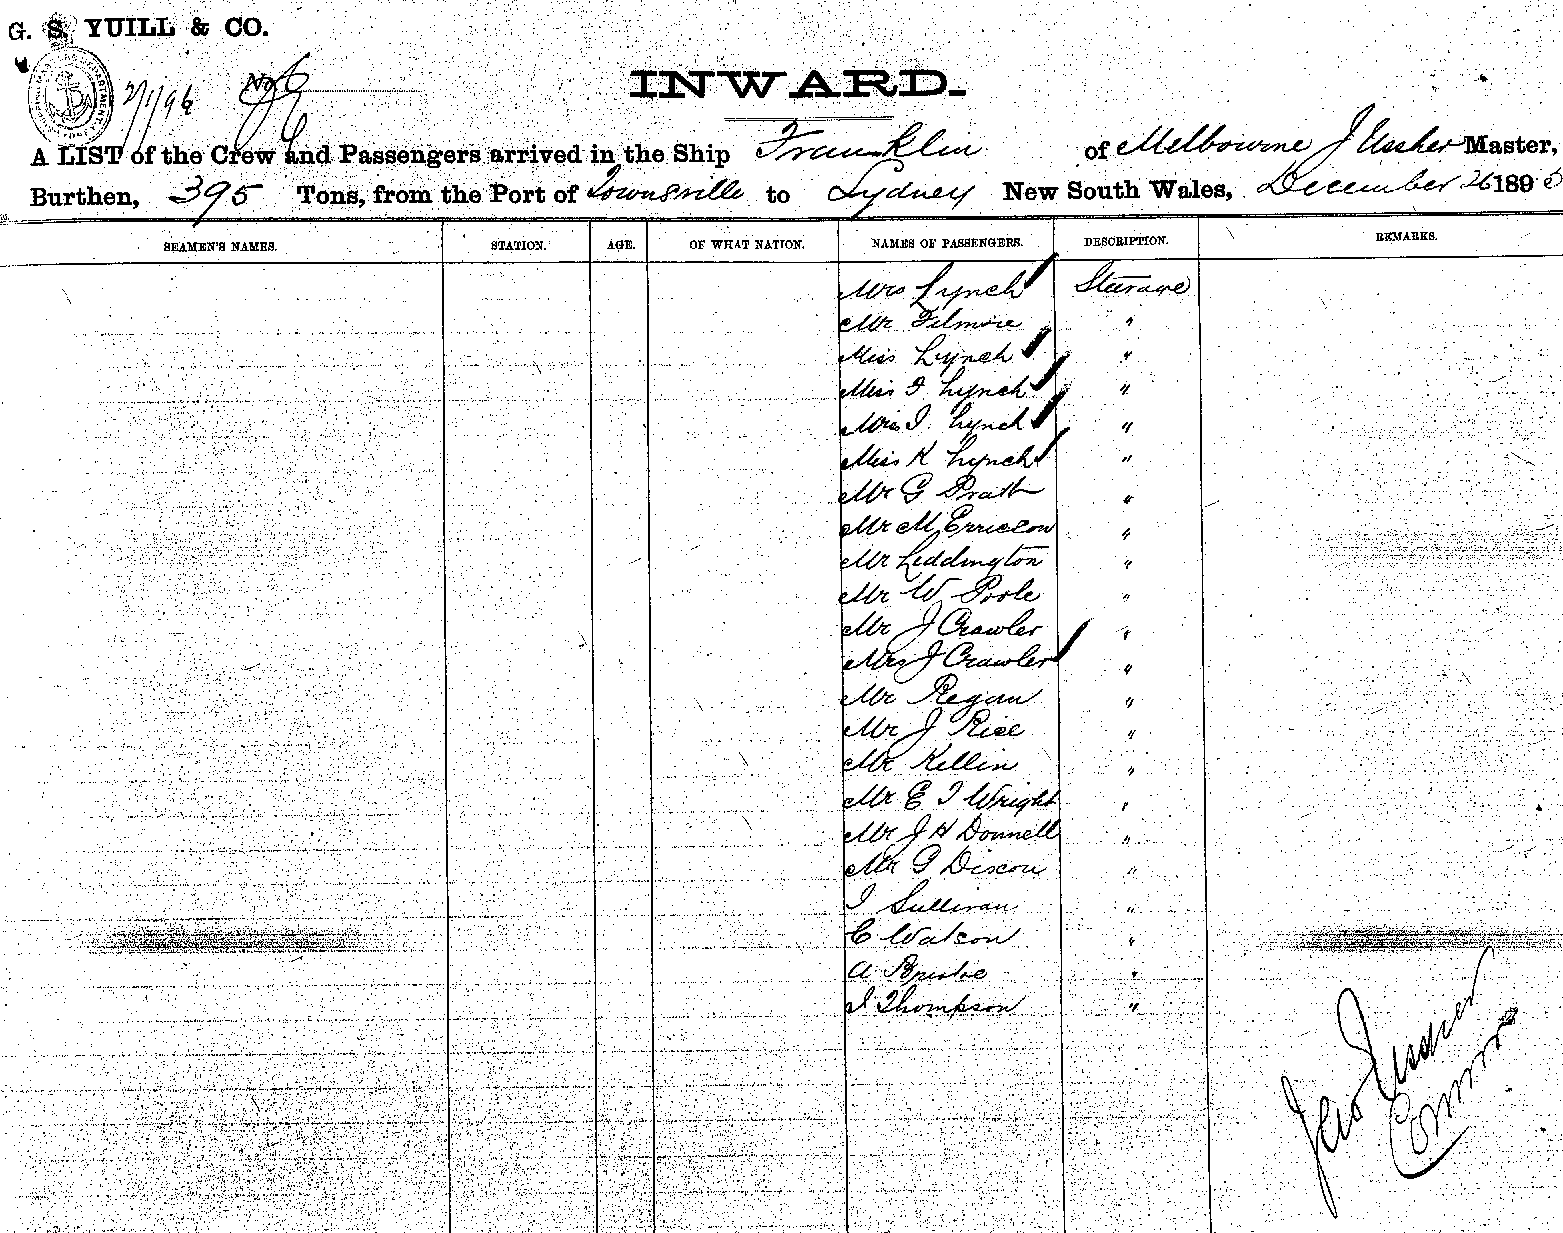 G. S. YUILL & CO.
2/1/96 No
INWARD.
A LIST of the Crew and Passengers arrived in the Ship Franklin of Melbourne J Ussher Master,
Burthen, 395 Tons, from the Port of Townsville to Sydney New South Wales, December 26 1895
SEAMEN'S NAMES. STATION. AGE. OF WHAT NATION. NAMES OF PASSENGERS. DESCRIPTION. REMARKS.
Mrs Lynch Steerage
Mr Filmore "
Miss Lynch "
Miss F Lynch "
Miss I. Lynch "
Miss K Lynch "
Mr G Pratt "
Mr M Erricson "
Mr Liddington "
Mr W Poole "
Mr J Crawler "
Mrs J Crawler "
Mr Regan "
Mr J Rise "
Mr Killin "
Mr E J Wright "
Mr J H Donnell "
Mr G Dixon "
J Sullivan "
C Watson "
A Bristoe "
J Thompson "
Ussher